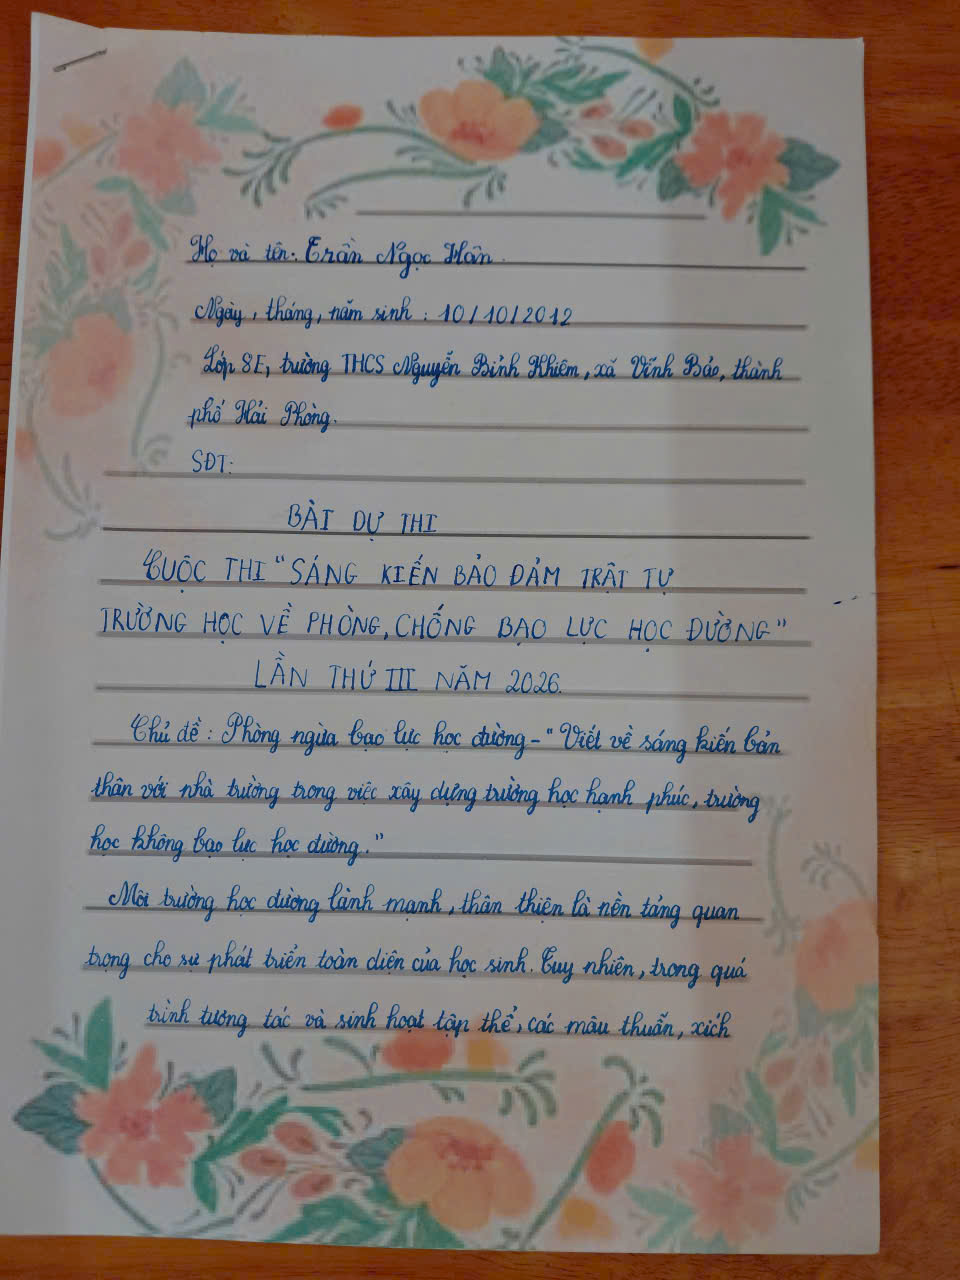 Họ và tên: Trần Ngọc Hân.
Ngày, tháng, năm sinh : 10/10/2012
Lớp 8E, trường THCS Nguyễn Bỉnh Khiêm, xã Vĩnh Bảo, thành
phố Hải Phòng.
SĐT:
BÀI DỰ THI
CUỘC THI "SÁNG KIẾN BẢO ĐẢM TRẬT TỰ
TRƯỜNG HỌC VỀ PHÒNG, CHỐNG BẠO LỰC HỌC ĐƯỜNG"
LẦN THỨ III NĂM 2026.
Chủ đề : Phòng ngừa bạo lực học đường - "Viết về sáng kiến bản
thân với nhà trường trong việc xây dựng trường học hạnh phúc, trường
học không bạo lực học đường."
Môi trường học đường lành mạnh, thân thiện là nền tảng quan
trọng cho sự phát triển toàn diện của học sinh. Tuy nhiên, trong quá
trình tương tác và sinh hoạt tập thể, các mâu thuẫn, xích